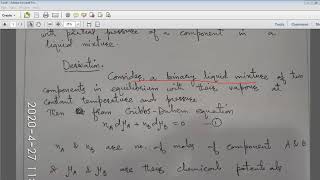 with partial pressure of a component in a
liquid mixture.
Derivation.
Consider, a binary liquid mixture of two
components in equilibrium with their vapour at
constant temperature and pressure.
Then from Gibbs-Duhem equation
nA dμA + nB dμB = 0 ①
nA & nB are no. of moles of component A & B
& μA & μB are their chemical potentials
2020-4-27 11